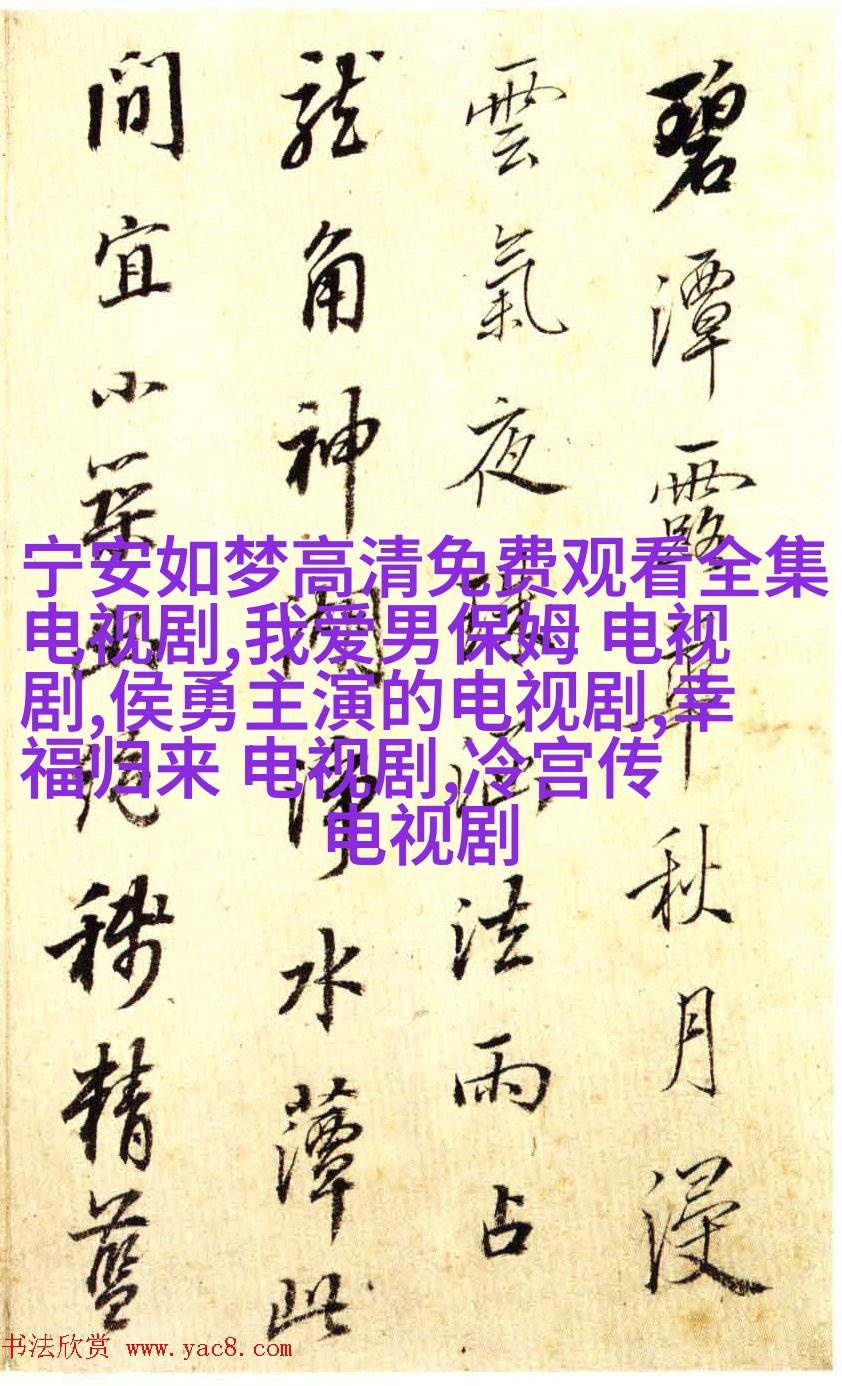 碧潭露秋月浸
雲氣夜法雨占
龍角神水潭此
間宜小築幽絕稱精藍
宁安如梦高清免费观看全集
电视剧,我爱男保姆 电视
剧,侯勇主演的电视剧,幸
福归来 电视剧,冷宫传
电视剧
书法欣赏 www.yac8.com